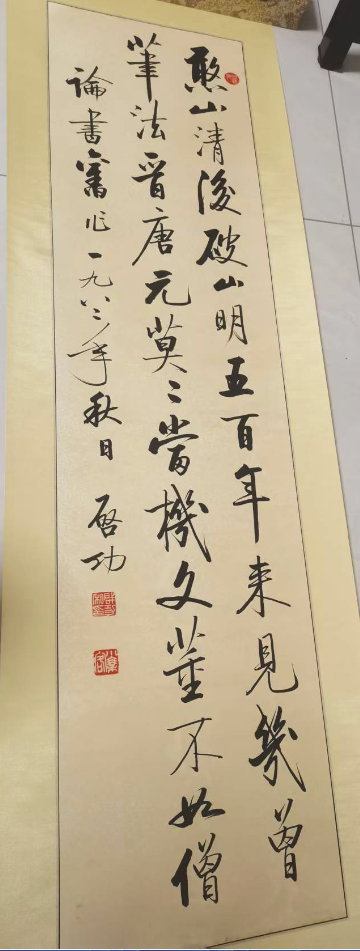 憨山清後破山明五百年来見幾曾
筆法晋唐元莫〻當機文董不如僧
論書舊作一九八二年秋日 啓功